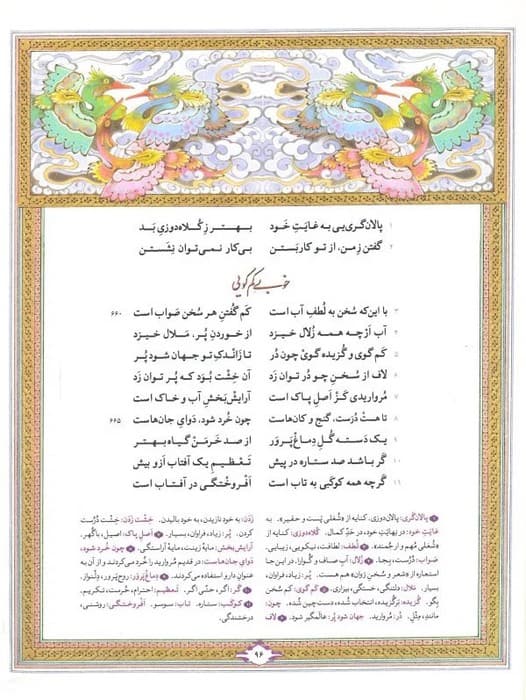 ۱ پالان‌گری‌یی به غایَتِ خَود بهتر زِ کُلاه‌دوزیِ بَد
۲ گفتن زِ من، از تو کار بَستن بی‌کار نمی‌توان نِشَستن
خوبی کم‌گویی
۳ با این‌که سُخن به لُطفِ آب است کَم گُفتنِ هر سُخن صَواب است ۶۶۰
۴ آب اَرْچه همه زُلال خیزد از خوردنِ پُر، مَلال خیزد
۵ کَم گوی و گُزیده گویْ چون دُر تا زَانْدَکِ تو جهان شود پُر
۶ لاف از سُخَنِ چو دُر توان زد آن خِشْت بُوَد که پُر توان زَد
۷ مرواریدی کَزْ اَصلِ پاک است آرایشْ‌بَخشِ آب و خاک است
۸ تا هَستْ دُرُست، گنج و کان‌هاست چون خُرد شود، دَوایِ جان‌هاست ۶۶۵
۹ یک دَسته گُلِ دِماغْ‌پَروَر از صد خَرمَنْ گیاه بهتر
۱۰ گَر باشد صد ستاره در پیش تَعْظیمِ یک آفتاب ازو بیش
۱۱ گرچه همه کوکَبی به تاب است اَفروخْتگی در آفتاب است
۱ پالان‌گَری: پالان‌دوزی. کنایه از «شُغلی پَست و حقیر». به
غایتِ خود: در نِهایَتِ خود، در حَدِّ کمال. کُلاه‌دوزی: کنایه از
«شُغلی مُهم و اَرجمند». ۳ لُطف: لطافت، نیکویی، زیبایی.
صَواب: دُرُست، بِجا. ۴ زُلال: آبِ صاف و گُوارا. در این‌جا
استعاره از «شعر و سُخَنِ رَوان» هم هست. پُر: زیاد، فراوان،
بسیار. مَلال: دلتنگی، خستگی، بیزاری. ۵ کم گوی: کم سُخَن
بِگو. گُزیده: بَرگُزیده، انتخاب شده، دست‌چین شده. چون:
مانند، مِثلِ. دُر: مُروارید. جهان شود پُر: عالَمگیر شود. ۶ لاف
زَدَن: به خود نازیدن، به خود بالیدن. خِشْت زَدَن: خِشْت دُرُست
کردن. پُر: زیاد، فراوان، بسیار. ۷ اَصلِ پاک: اَصیل، باگُهَر.
آرایش‌بخش: مایهٔ زینت، مایهٔ آراستگی. ۸ چون خُرد شود،
دَوایِ جان‌هاست: در قدیم مُروارید را خُرد می‌کردند و از آن به
عنوانِ دارو استفاده می‌کردند. ۹ دِماغْ‌پَروَر: روح‌پَروَر، دِلْنَواز.
۱۰ گَر: اگر، حتّی اگر. تَعظیم: احترام، حُرمت، تکریم.
۱۱ کوکَب: ستاره. تاب: سوسو. اَفروختگی: روشنی،
درخشندگی.
۹۶